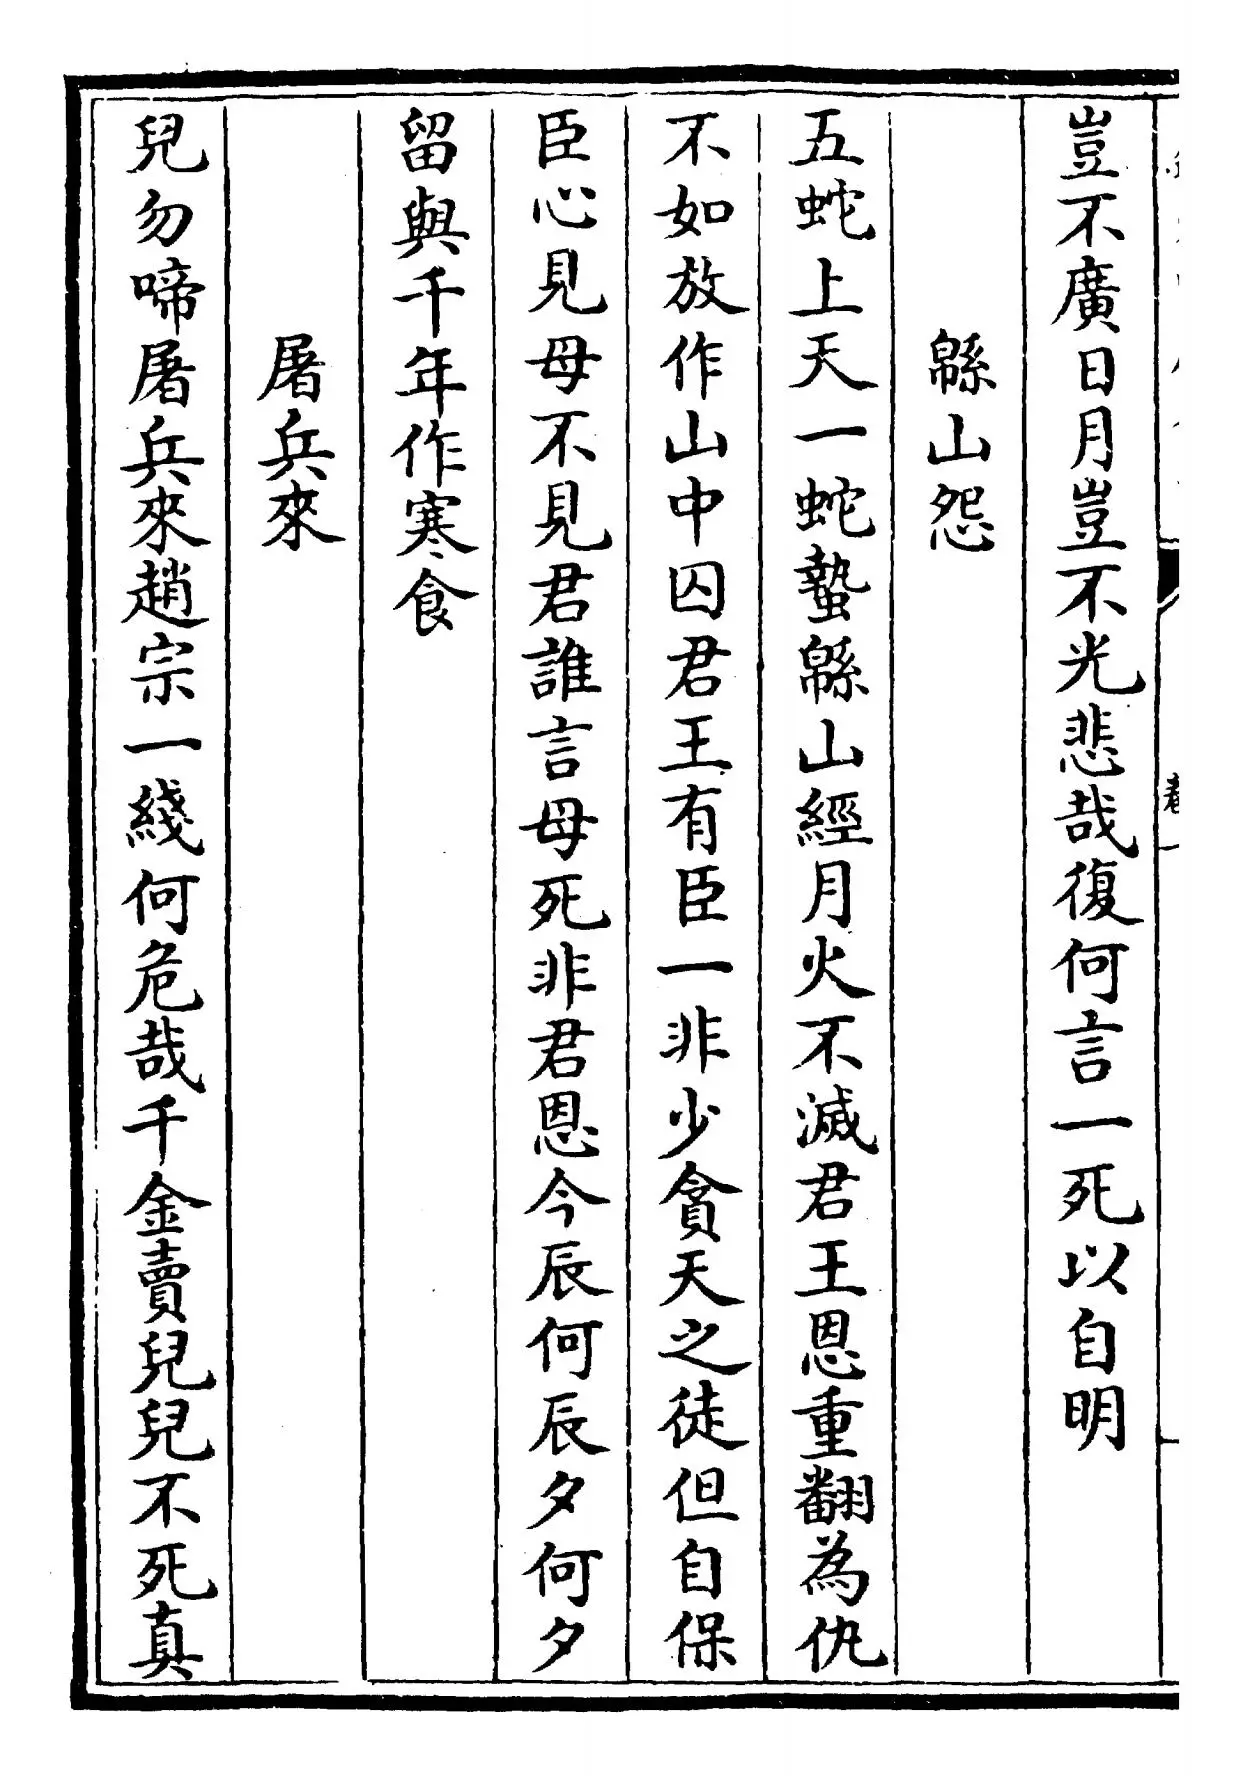 豈不廣日月豈不光悲哉復何言一死以自明
緜山怨
五蛇上天一蛇蟄緜山經月火不滅君王恩重翻為仇
不如放作山中囚君王有臣一非少貪天之徒但自保
臣心見母不見君誰言母死非君恩今辰何辰夕何夕
留與千年作寒食
屠兵來
兒勿啼屠兵來趙宗一綫何危哉千金賣兒兒不死真